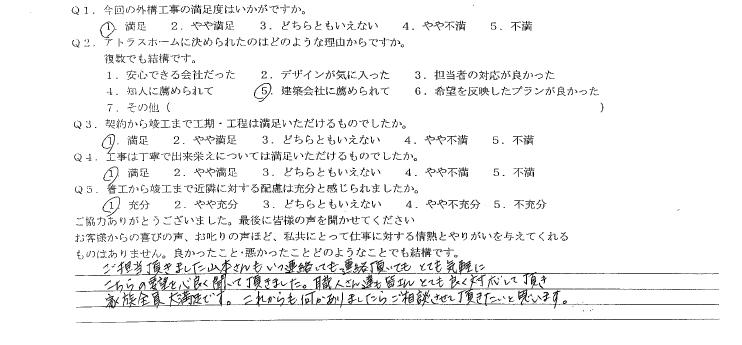 Q1．今回の外構工事の満足度はいかがですか。
①．満足　2．やや満足　3．どちらともいえない　4．やや不満　5．不満
Q2．アトラスホームに決められたのはどのような理由からですか。
複数でも結構です。
1．安心できる会社だった　2．デザインが気に入った　3．担当者の対応が良かった
4．知人に薦められて　⑤．建築会社に薦められて　6．希望を反映したプランが良かった
7．その他（　　　）
Q3．契約から竣工まで工期・工程は満足いただけるものでしたか。
①．満足　2．やや満足　3．どちらともいえない　4．やや不満　5．不満
Q4．工事は丁寧で出来栄えについては満足いただけるものでしたか。
①．満足　2．やや満足　3．どちらともいえない　4．やや不満　5．不満
Q5．着工から竣工まで近隣に対する配慮は充分と感じられましたか。
①．充分　2．やや充分　3．どちらともいえない　4．やや不充分　5．不充分
ご協力ありがとうございました。最後に皆様の声を聞かせてください
お客様からの喜びの声、お叱りの声ほど、私共にとって仕事に対する情熱とやりがいを与えてくれる
ものはありません。良かったこと・悪かったことどのようなことでも結構です。
ご担当頂きました山本さんもいつ連絡しても、連絡頂いても とても気軽に
こちらの要望を心良く聞いて頂きました。職人さん達も皆さん とても良く対応して頂き
家族全員 大満足です。これからも何かありましたらご相談させて頂きたいと思います。